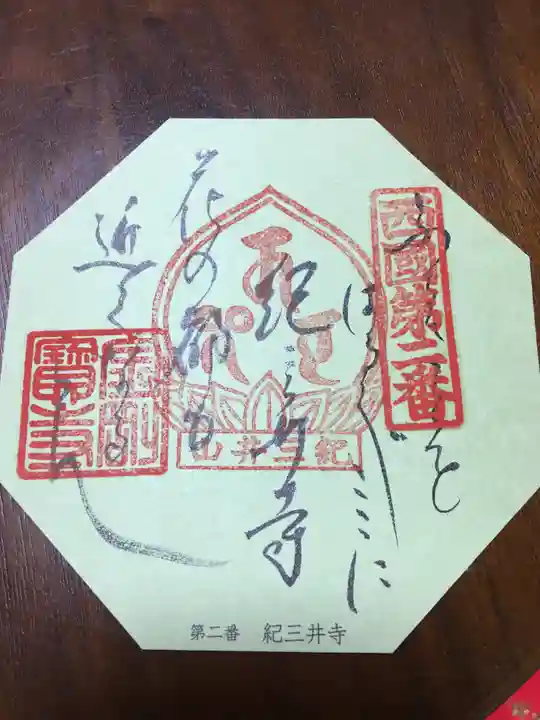 西國第二番
ふるさとを
はる〴〵こゝに
紀三井寺
花の都も
近くなるらん
紀三井山
金剛
寶寺
第二番 紀三井寺